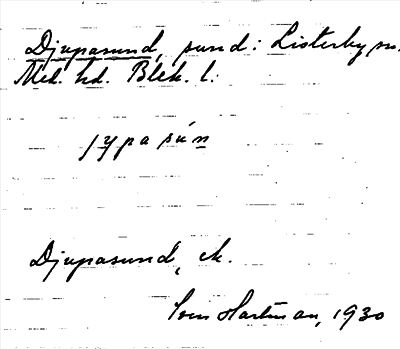 Djupasund, sund: Listerby sn.
Med. hd. Blek. l.
jypa sún
Djupasund, ek.
Sven Hartman, 1930